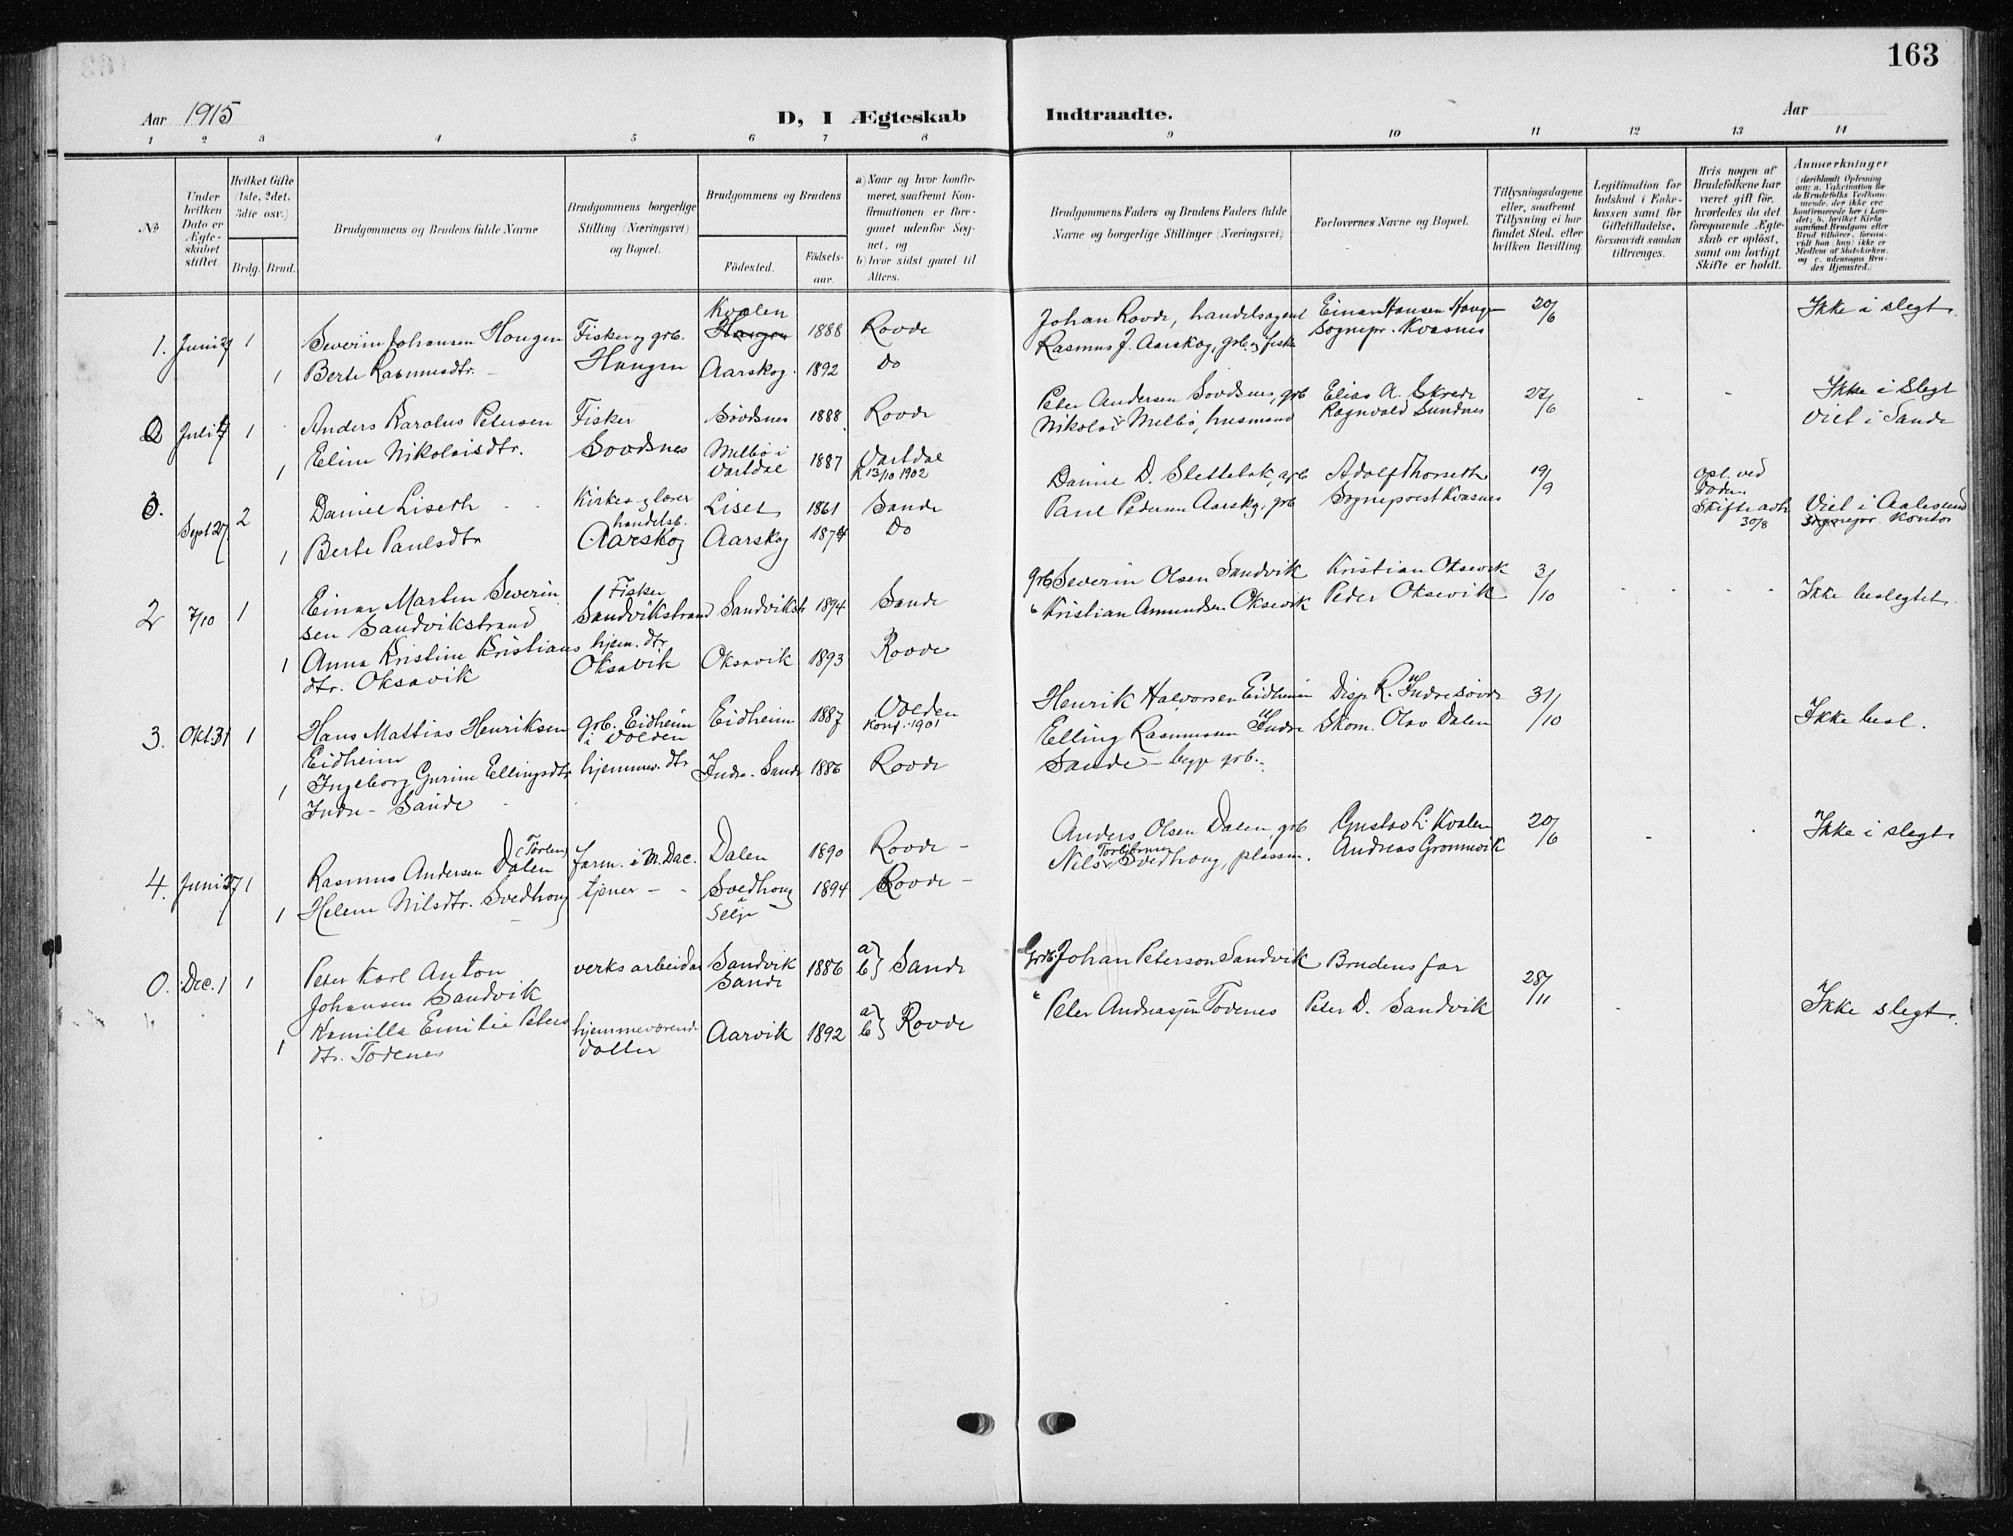 163
Aar 1915
D, I Ægteskab Indtraadte.
Aar
1 2 3 4 5 6 7 8 9 10 11 12 13 14
№
Under hvilken Dato er Ægteskabet stiftet.
Hvilket Gifte (1ste, 2det, 3die osv.)
Brdg. Brud.
Brudgommens og Brudens fulde Navne
Brudgommens borgerlige Stilling (Næringsvei) og Bopæl.
Brudgommens og Brudens
Fødested.
Fødselsaar.
a) Naar og hvor konfirmeret, saafremt Konfirmationen er foregaaet udenfor Sognet, og
b) hvor sidst gaaet til Alters.
Brudgommens Faders og Brudens Faders fulde Navne og borgerlige Stillinger (Næringsvei)
Forlovernes Navne og Bopæl.
Tillysningsdagene eller, saafremt Tillysning ei har fundet Sted, efter hvilken Bevilling.
Legitimation for Indskud i Enkekassen samt for Giftetilladelse, forsaavidt saadan tiltrænges.
Hvis nogen af Brudefolkene har været gift før, hvorledes da det foregaaende Ægteskab er opløst, samt om lovligt Skifte er holdt.
Anmærkninger
(deriblandt Oplysning om: a. Vakcination for de Brudefolks Vedkommende, der ikke ere konfirmerede her i Landet; b. hvilket Kirkesamfund Brudgom eller Brud tilhører, forsaavidt han (hun) ikke er Medlem af Statskirken, og c. udensogns Brudes Hjemsted.)
1. Juni 27 1 Severin Johansen Hougen Fisker og grb. Kvalen Hougen 1888 Rovde Johan Rovde, handelsagent Einar Hansen Houge 20/6 Ikke i slegt.
1 Berte Rasmusdtr. Hougen Aarskog 1892 Do Rasmus J. Aarskog, grb. og fisker Sognepr. Kvasnes
Juli 4 1 Anders Karolus Petersen Fisker Sovdsnes 1888 Rovde Peter Andersen Sovdsnes, grb Elias A. Skrede 27/6 Ikke i Slegt
1 Eline Nikolaisdtr. Sovdsnes Melbö i Vartdal 1887 Vartdal K 13/10 1902 Nikolai Melbö, husmand Ragnvald Sundnes Viet i Sande
3. Sept 27 2 Daniel Liseth Kirkes. og lærer Liset 1861 Sande Daniel D. Slettebak, grb Adolf Thorseth 19/9 opl. ved Død. Skifteatt. 30/8 Viet i Aalesund
1 Berte Paulsdtr handelsb. Aarskog Aarskog 1874 Do Paul Pedersen Aarskog, grb Sogneprest Kvasnes Sognepr. Kontor
2 7/10 1 Einar Martin Severinsen Sandvikstrand Fisker Sandvikstrand Sandvikstr 1894 Sande grb Severin Olsen Sandvik Kristian Oksavik 3/10 Ikke beslegtet.
1 Anna Kristine Kristiansdtr. Oksavik hjem. dtr. Oksavik Oksavik 1893 Rovde " Kristian Amundsen Oksevik Peder Oksevik
3. Okt. 31 1 Hans Mathias Henriksen Eidheim grb. Eidheim i Volden Eidheim 1887 Volden Konf. 1901 Henrik Halvorsen Eidheim Disp. R. Indresövde 31/10 Ikke besl.
1 Ingeborg Gurine Ellingsdtr Indre-Sande hjemmev. dtr Indre-Sande 1886 Rovde Elling Rasmussen Indre Sande - bygp. grb. Skom. Olav Dalen
4. Juni 27 1 Rasmus Andersen Dalen farm. i M. Dac. Dalen 1890 Rovde - Anders Olsen Dalen, grb Gustav L. Kvalen 20/6 Ikke i slegt
1 Helene Nilsdtr. Svedhoug tjener - Svedhoug i Selje 1894 Rovde - Nils Torbjörnsen Svedhoug, plassm. Andreas Gromsvik
0. Dec. 1 1 Peter Karl Anton Johansen Sandvik verksarbeider Sandvik Sande 1886 a) b) Sande Grdb. Johan Peterson Sandvik Brudens far 28/11 Ikke slegt.
1 Kamilla Emilie Petersdtr. Todenes hjemmeværende datter Aarvik 1892 a) b) Rovde " Peter Andreassen Todenes Peter D. Sandvik